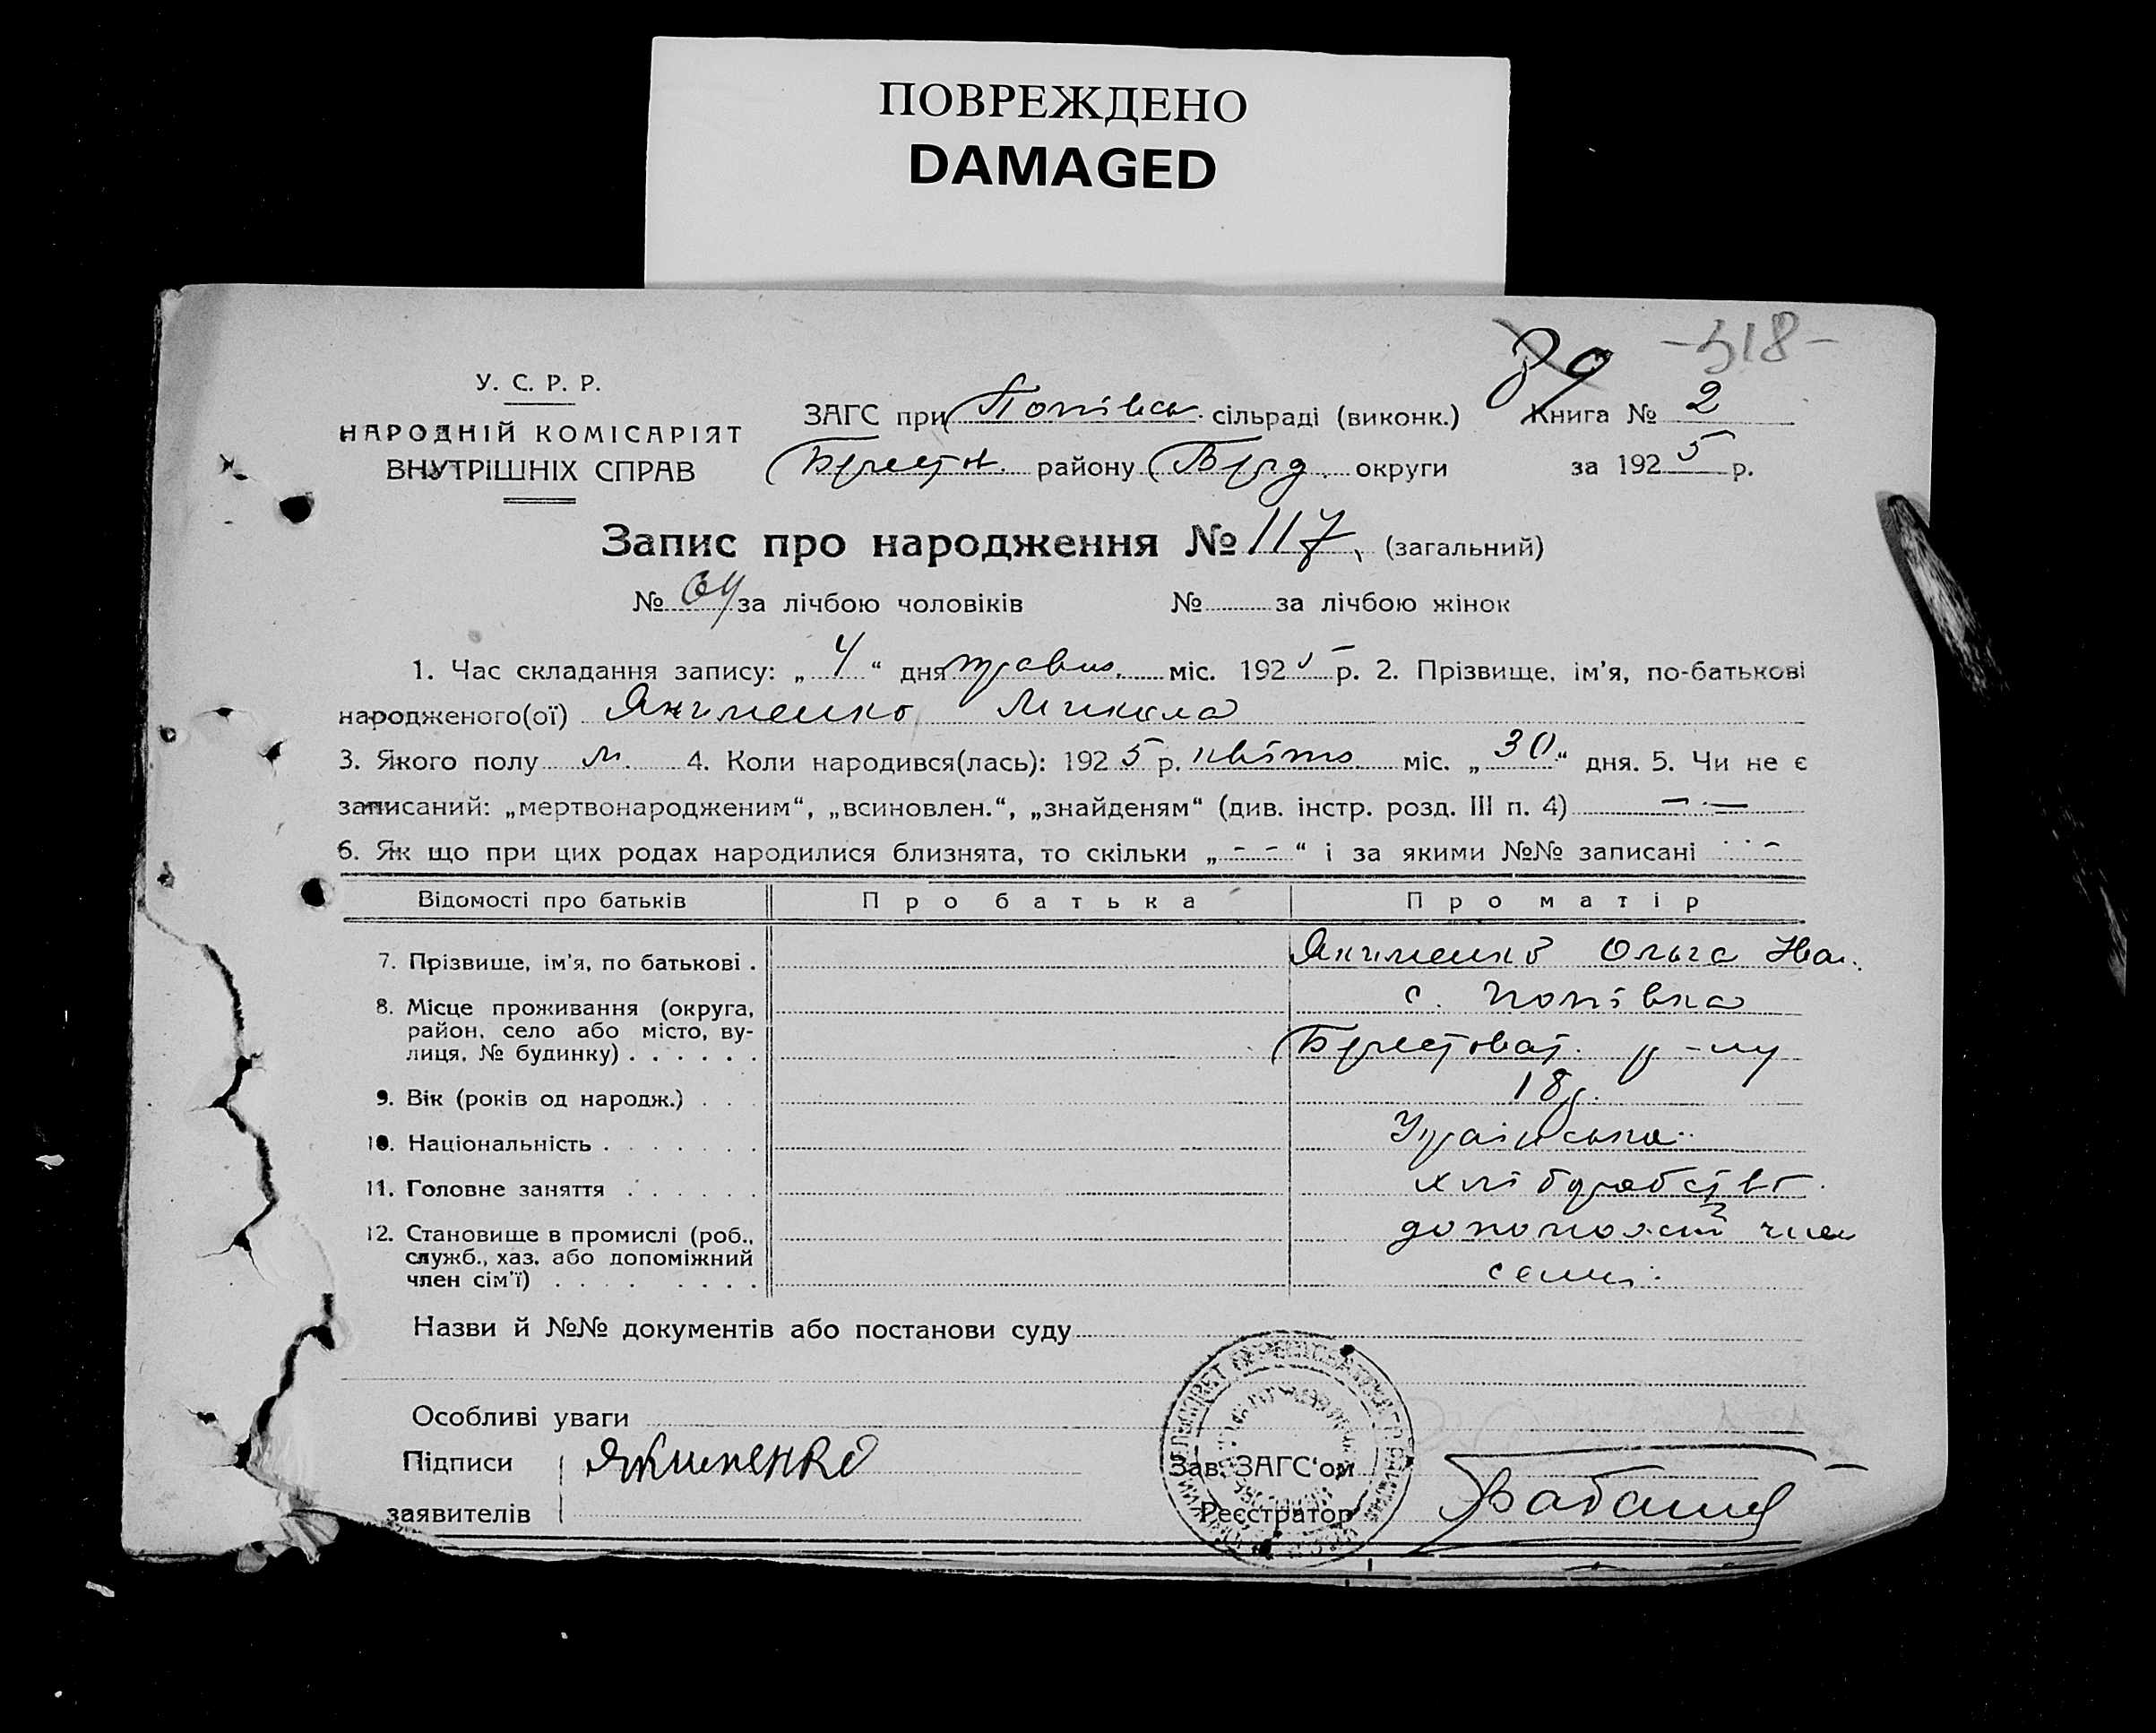 ПОВРЕЖДЕНО
DAMAGED
-518-
У. С. Р. Р.
НАРОДНІЙ КОМІСАРІЯТ
ВНУТРІШНІХ СПРАВ
ЗАГС при Попівськ. сільраді (виконк.) Книга № 2
району округи за 1925 р.
Запис про народження № 117, (загальний)
№ 64 за лічбою чоловіків № за лічбою жінок
1. Час складання запису: „ 4 “ дня травня міс. 1925 р. 2. Прізвище, ім’я, по-батькові
народженого(ої) Якименко Микола
3. Якого полу м. 4. Коли народився(лась): 1925 р. квітн. міс. „ 30 “ дня. 5. Чи не є
записаний: „мертвонародженим“, „всиновлен.“, „знайденям“ (див. інстр. розд. III п. 4) — · —
6. Як що при цих родах народилися близнята, то скільки „ - - “ і за якими №№ записані
Відомості про батьків Про батька Про матір
7. Прізвище, ім’я, по батькові . Якименко Ольга Ів.
8. Місце проживання (округа, с. Попівка
район, село або місто, ву-
лиця, № будинку) . . . . . . Берестоват. р-ну
9. Вік (років од народж.) . . . 18 р.
10. Національність . . . . . . . Українська
11. Головне заняття . . . . . . хліборобство
12. Становище в промислі (роб., допоможн член
служб., хаз. або допоміжний
член сім’ї) . . . . . . . . семі.
Назви й №№ документів або постанови суду
Особливі уваги
Підписи Якименко Зав. ЗАГС‘ом
заявителів Реєстратор